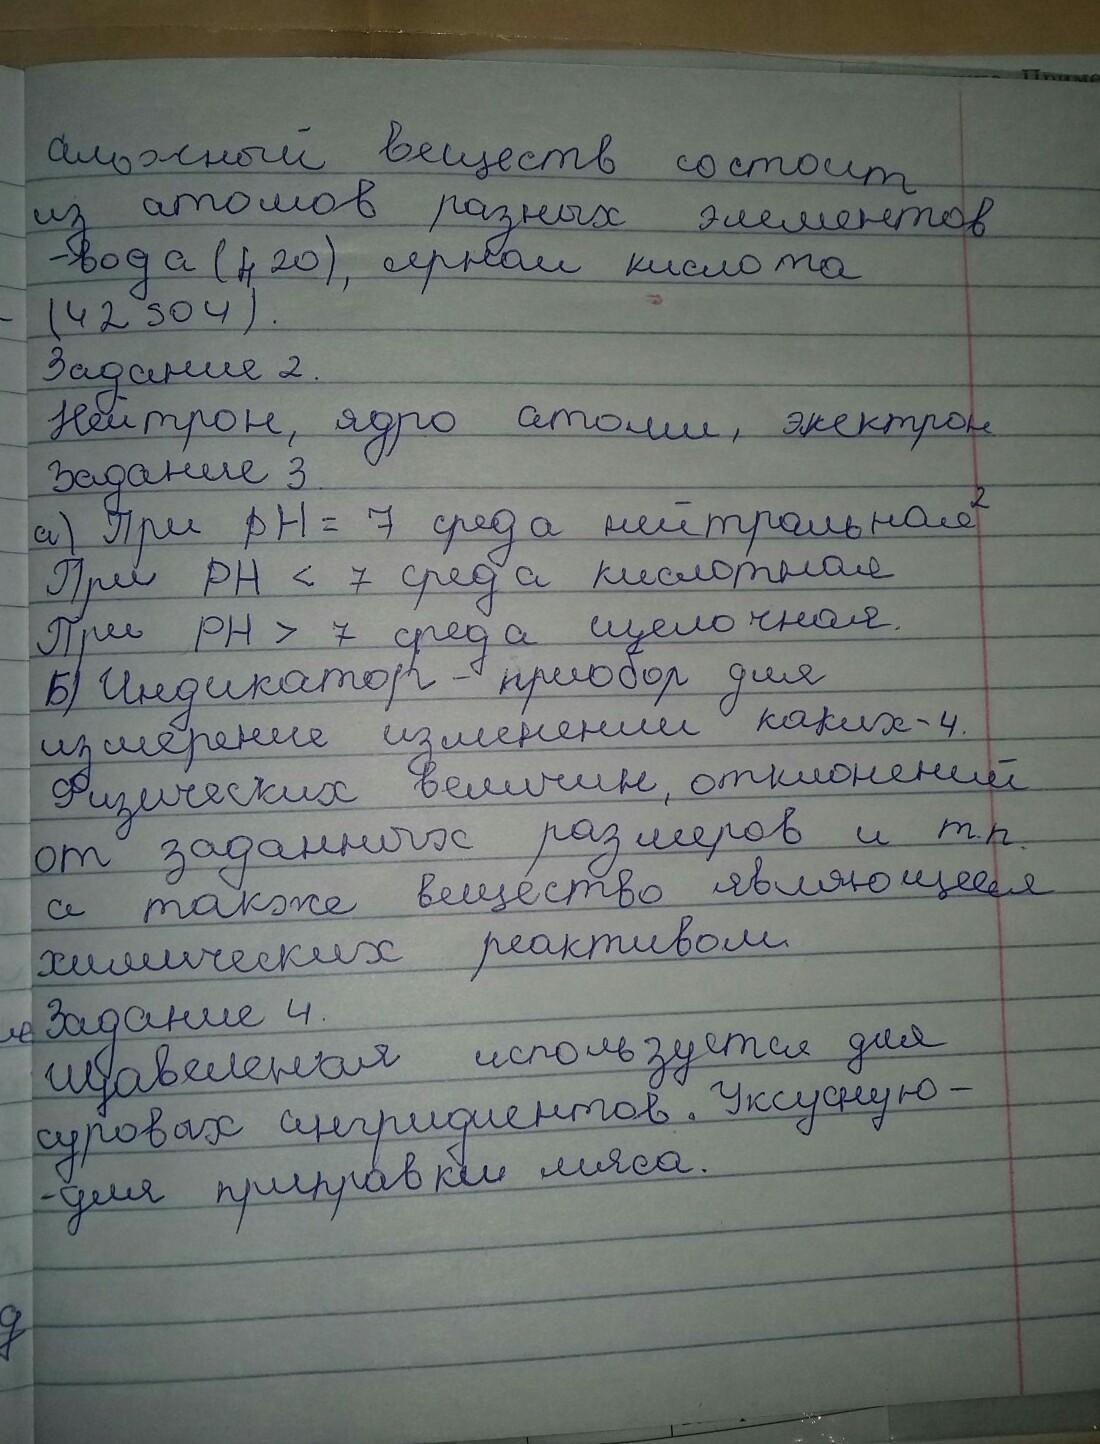 Приме
сложный веществ состоит
из атомов разных элементов
-вода (H20), серная кислота
(42 SO4).
Задание 2.
Нейтрон, ядро атоми, экектрон
Задание 3.
а) При pH = 7 среда нейтральная 2
При PH < 7 среда кислотная
При PH > 7 среда щелочная.
Б) Индикатор - приобор для
измерение изменении каких-ч.
Физических величин, отклонений
от заданных размеров и т.п.
а также вещество являющееся
химических реактивом.
Задание 4.
Щавеленая используется для
суровых ингридиентов. Уксусную-
-для приправки мяса.